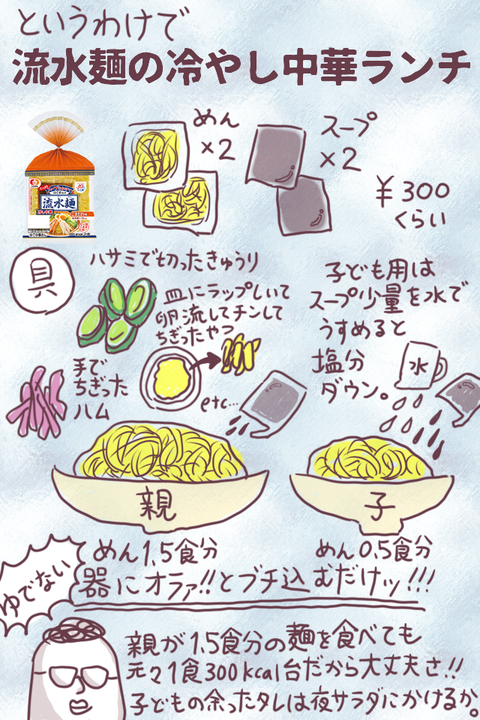 というわけで
流水麺の冷やし中華ランチ
めん
×2
スープ
×2
¥300
くらい
流水麺
具
ハサミで切ったきゅうり
皿にラップしいて
卵流してチンして
ちぎったやつ
手で
ちぎった
ハム
etc…
子ども用は
スープ少量を水で
うすめると
塩分
ダウン。
水
親
子
めん1.5食分
めん0.5食分
ゆでない
器にオラァ!!とブチ込むだけッ!!!
親が1.5食分の麺を食べても
元々1食300kcal台だから大丈夫さ!!
子どもの余ったタレは夜サラダにかけるか。